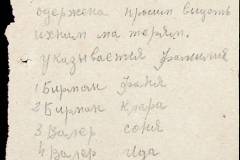 одержена просим выдать
ихним матерям.
указывается фамилия
1 Бирман Фаня
2 Бирман Клара
3 Валер соня
4 Валер Ида